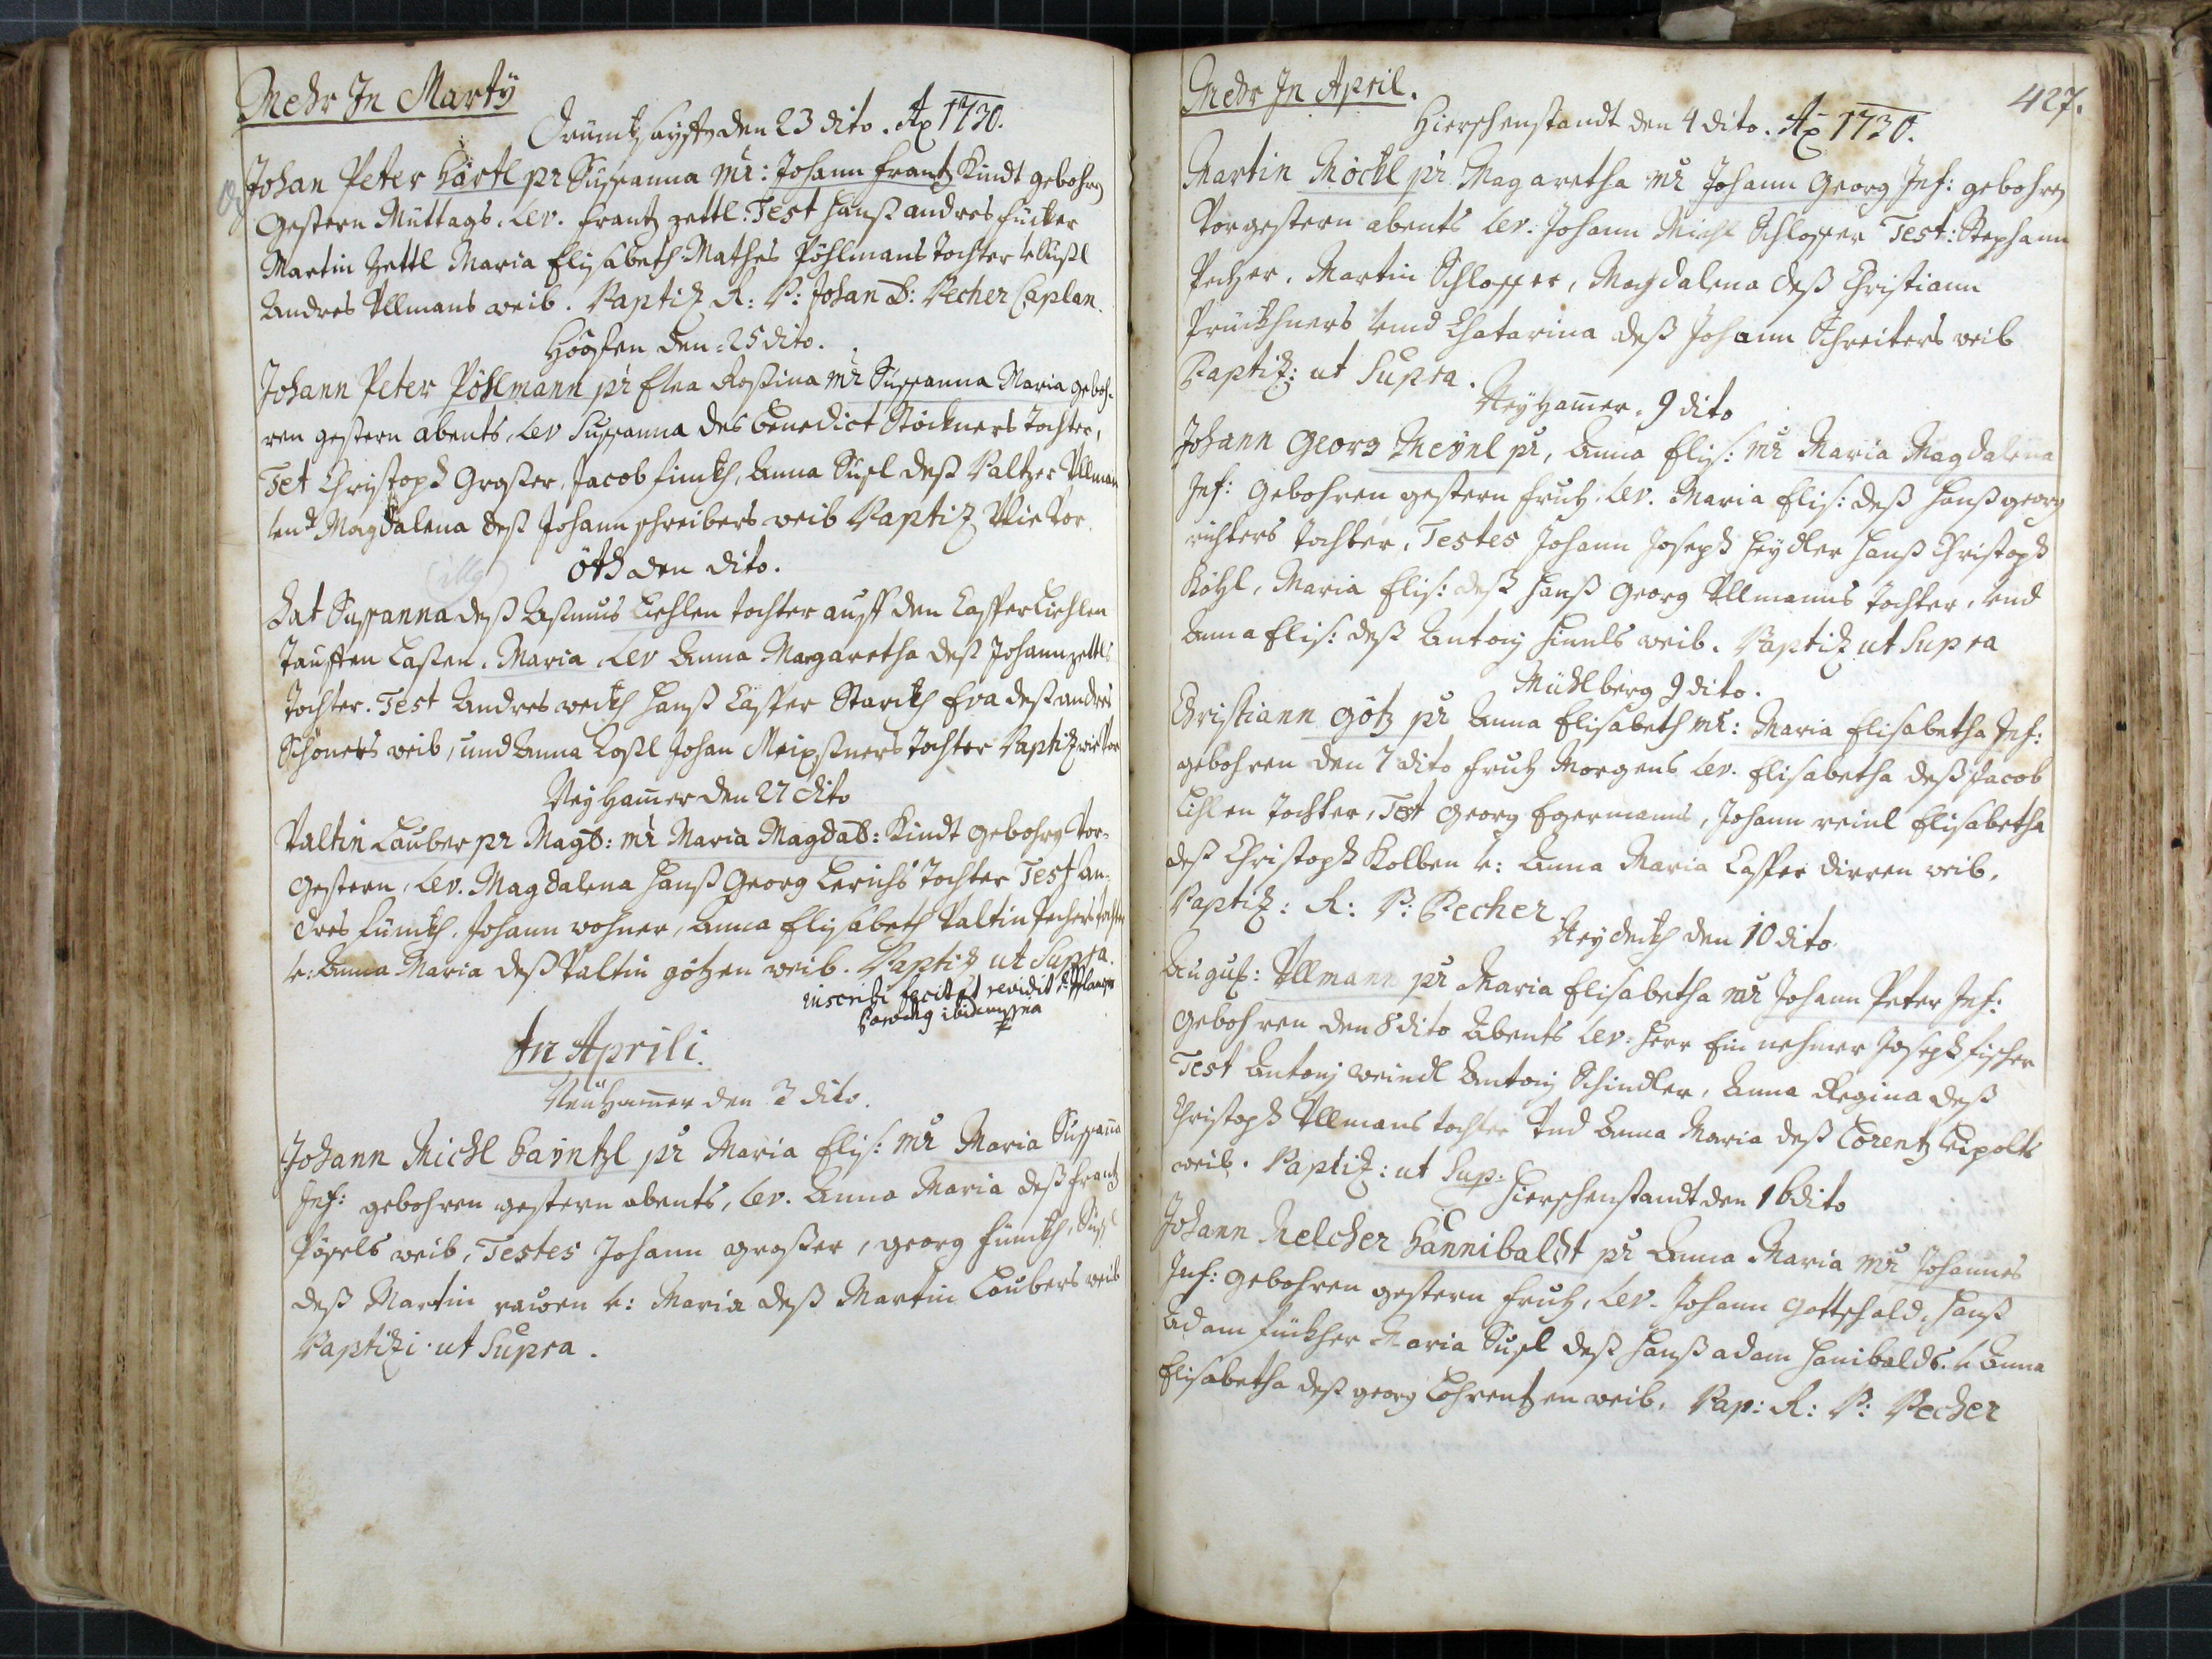 Mehr In Marty
den 23 dito. Aō 1730.
Johan Peter Härtl pr Susanna mr: Johann Frantz Kindt gebohrn
gestern Müttags. Lev. Frantz zettl: Test Hanß andres fücker
Martin Zettl Maria Elisabeth Mathes Pöhlmans tochter v: Susl
Andres Ullmans weib. Baptiz R: P: Johan D: Pecher Caplan.
Höhsen den: 25 dito.
Johann Peter Pöhlmann pr Elea Rosina mr Susanna Maria geboh-
ren gestern abents, Lev Susanna des Benedict Stöckners tochter,
Tet Christoph Großer, Jacob finkh, Anna Susl deß Baltzer Ullman
vnd Magdalena deß Johann schreibers weib Baptiz Wie Vor.
(illg) öth den dito.
Hat Susanna deß Asmus Liehlen tochter auff den Casper Liehlen
tauffen Lasen. Maria, Lev Anna Margaretha deß Johann zettls
tochter. Test Andres weith Hanß Casper Starckh Eva deß andres
Schöners weib, und Anna Rosl Johan Meixsners tochter Baptiz wie Vor
Neyhamer den 27 dito
Valtin Lauber pr Magd: mr Maria Magdad: Kindt gebohrn Vor-
gestern, Lev. Magdalena Hanß Georg Lerichs tochter Test An-
dres fünckh. Johann wohner, Anna Elisabeth Valtin Pechers tochter
v: Anna Maria deß Valtin götzen weib. Baptiz ut Supra.
inscribi fecit et revidit
In Aprili.
Neühamer den 3 dito.
Johann Michl Bayntzl pr Maria Elis: mr Maria Susanna
Inf: gebohren gestern abents, Lev. Anna Maria deß frantz
Pössels weib, Testes Johann großer, georg fünckh, Susl
deß Martin rauen v: Maria deß Martin Laubers weib
Baptizi ut Supra.
Mehr In April.
427.
Hierschenstandt den 4 dito. Aō 1730.
Martin Möckl pr Magaretha mr Johann Georg Inf: gebohrn
Vorgestern abents Lev: Johann Michl Schlosser Test: Stephann
Pecher, Martin Schlosser, Magdalena deß Christiann
Prückhners vnd Chatarina deß Johann Schreiters weib
Baptiz: ut Supra.
Neyhamer. 9 dito
Johann Georg Meinl pr, Anna Elis: mr Maria Magdalena
Inf: Gebohren gestern fruh, Lev. Maria Elis: deß Hanß georg
richters tochter, Testes Johann Joseph Heydler Hanß Christoph
Köhl, Maria Elis: deß Hanß Georg Ullmanns tochter, vnd
Anna Elis: deß Antony Hinels weib. Baptiz ut Supra
Mühlberg 9 dito.
Christiann götz pr Anna Elisabeth mr: Maria Elisabetha Inf:
gebohren den 7 dito fruh Morgens Lev. Elisabetha deß Jacob
Lihlen tochter, Test Georg Egermanns, Johann reinl Elisabetha
deß Christoph Kolben v: Anna Maria Casper dirren weib,
Baptiz: R: P: Pecher
Neydeckh den 10 dito
August: Ullmann pr Maria Elisabetha mr Johann Peter Inf:
Gebohren den 8 dito Abents Lev: Herr Ein nehmer Joseph fischer
Test Antony Weindl Antony Schindler, Anna Regina deß
Christoph Ullmans tochter Vnd Anna Maria deß Lorentz Leipolts
weib. Baptiz: ut Sup:
Hierschenstandt den 16 dito
Johann Melcher Hannibaldt pr Anna Maria mr Johannes
Inf: Gebohren gestern fruh, Lev. Johann Gottschald, Hanß
Adam fückher Maria Susl deß Hanß adam Hanibalds. v Anna
Elisabetha deß georg Lohrentzen weib, Bap: R: P: Pecher